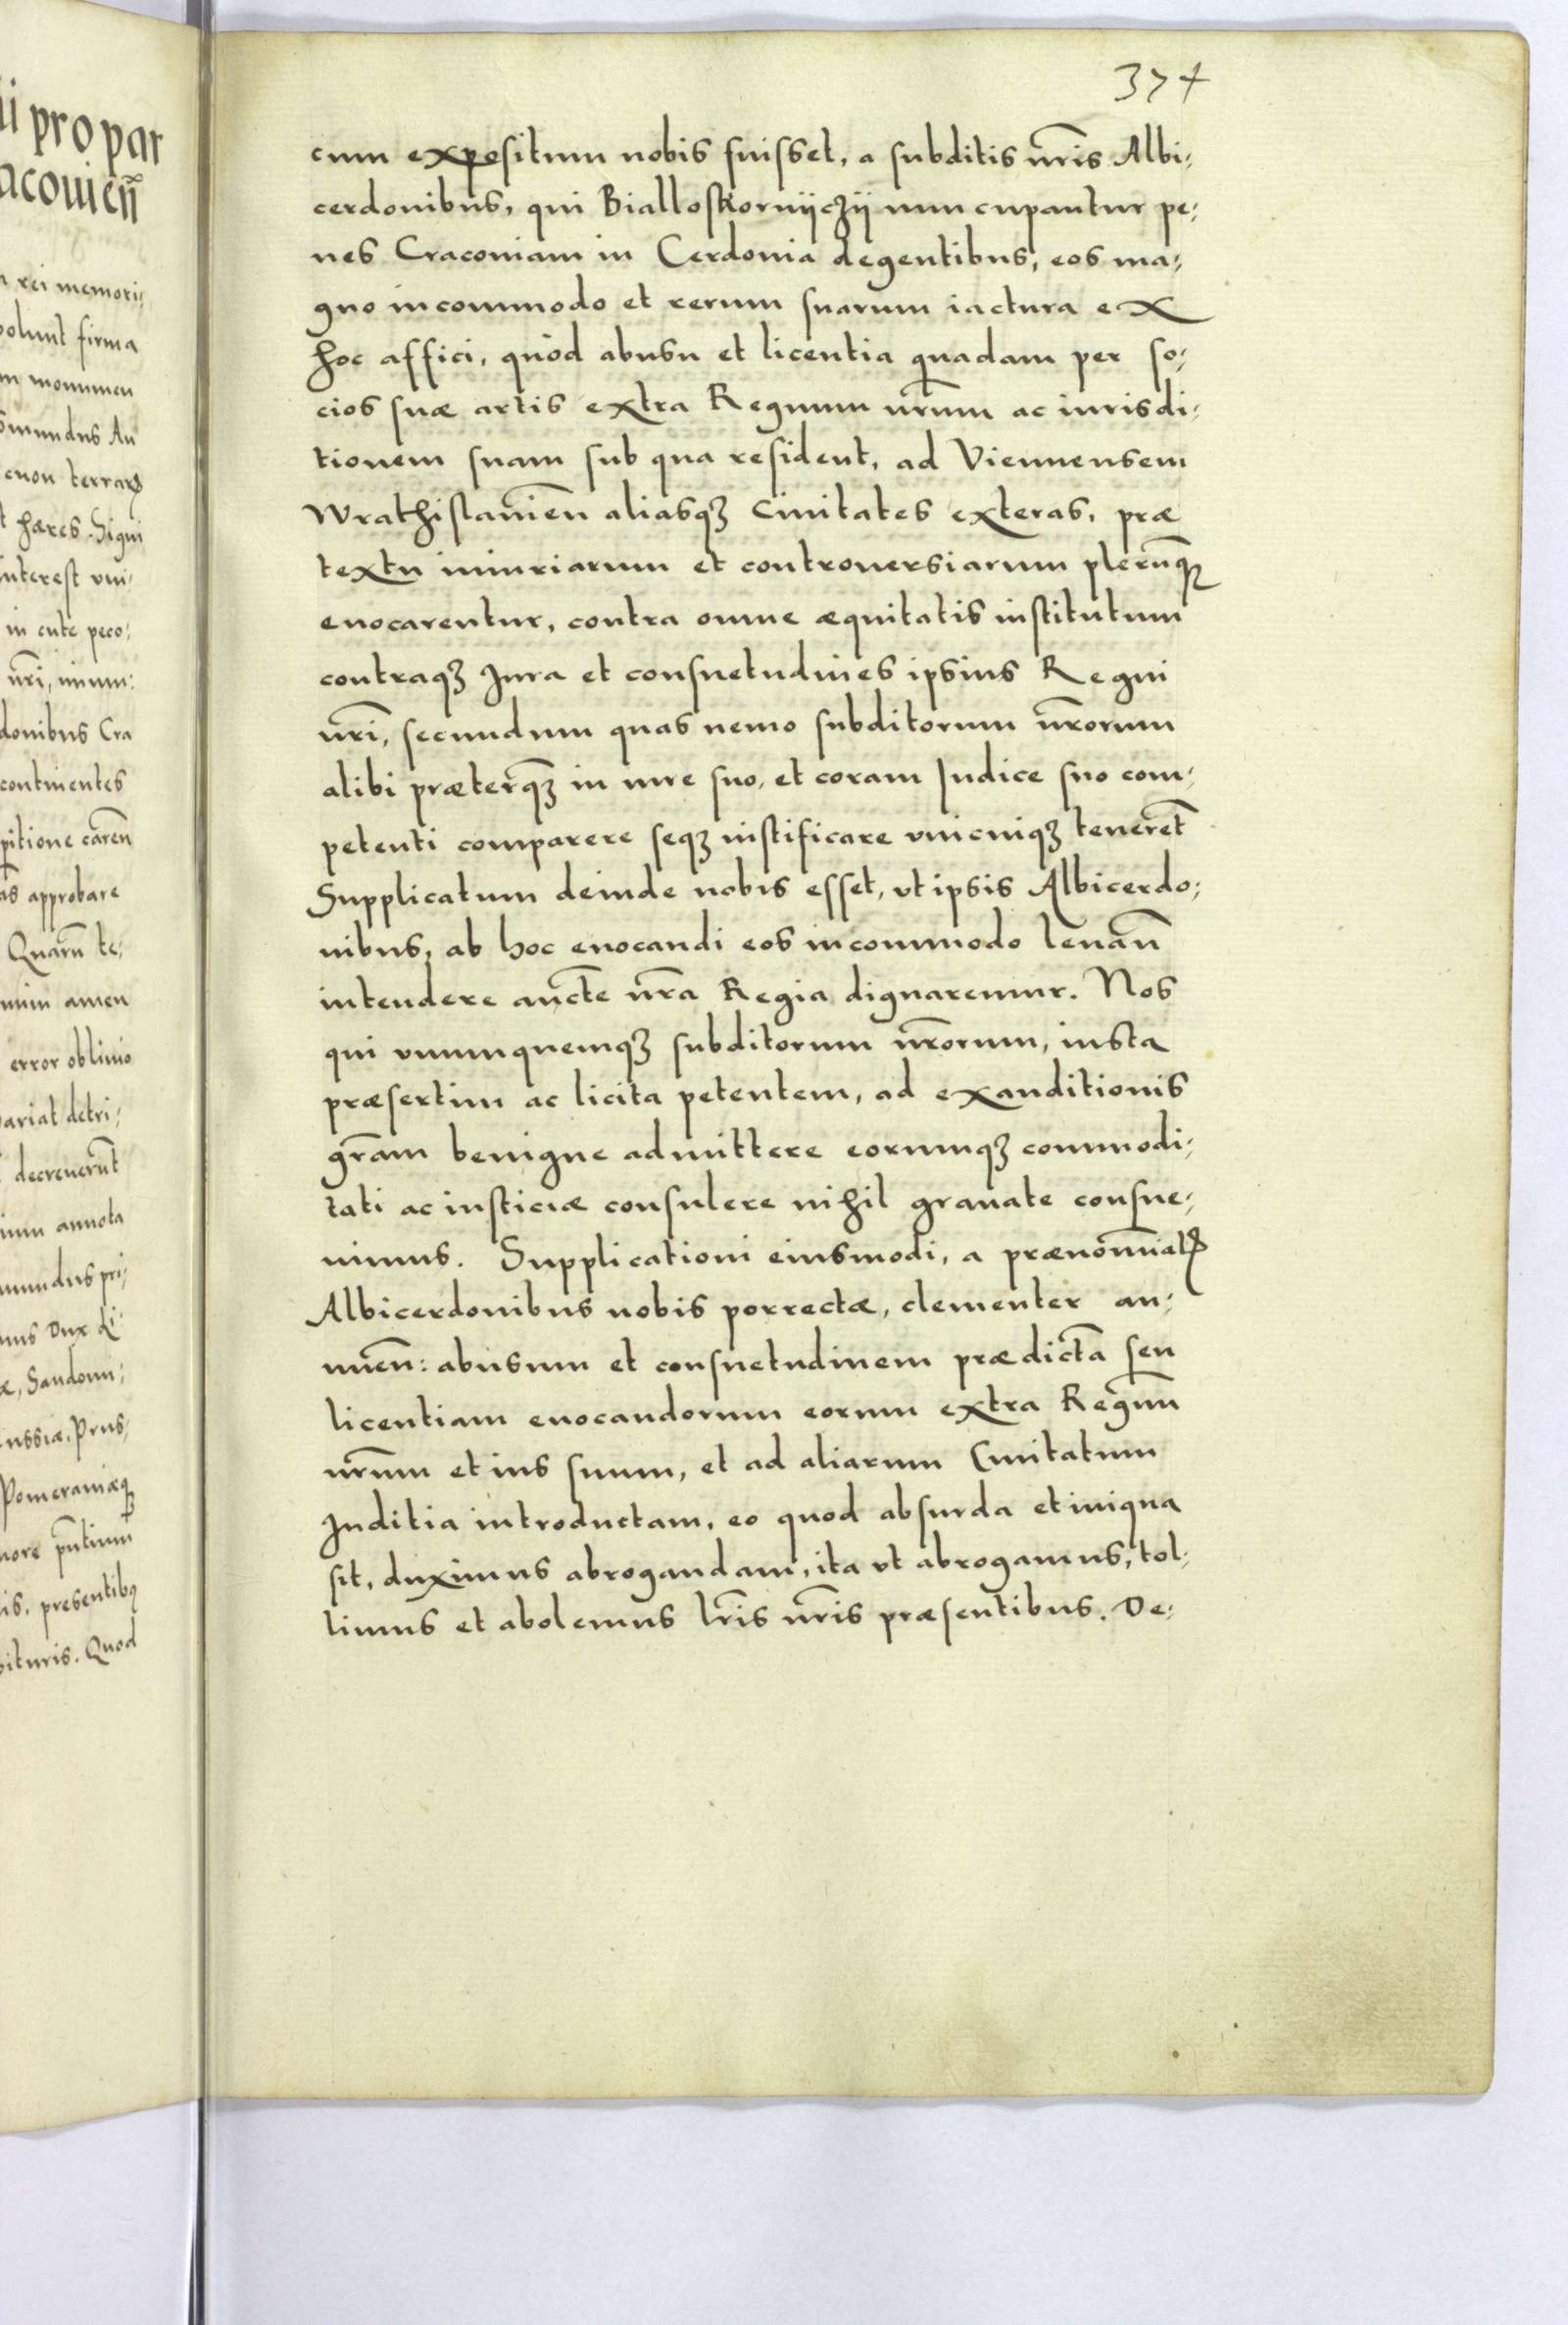 ii pro par
acouien̄
rei memori;
uolunt firma
monumen
smundus Au
cuon terrarꝫ
hæres. Siqui
interest vni;
in cute peco;
nr̄i, inum;
donibus Cra
continentes
pitione caren̄
as approbare
Quarū te;
nim amen
error obliuio
pariat detri;
decreuerūt
annota
mundus pri;
mus Dux Li
æ, Sandom;
ussiæ, Prus;
Pomeraniæqꝫ
more pn̄tium
is, presentibꝯ
bituris. Quod
374
cum expositum nobis fuisset, a subditis nr̄is Albi;
cerdonibus, qui Bialloskorniiczii nuncupantur pe;
nes Cracouiam in Cerdonia degentibus, eos ma;
gno incommodo et rerum suarum iactura ex
hoc affici, quòd abusu et licentia quadam per so;
cios suæ artis extra Regnum nr̄um ac iurisdi;
tionem suam sub qua resident, ad Viennensem
Wrathislauien̄ aliasqꝫ Ciuitates exteras, præ
textu iniuriarum et controuersiarum plerunqꝫ
euocarentur, contra omne æquitatis institutum
contraqꝫ Jura et consuetudines ipsius Regni
nr̄i, secundum quas nemo subditorum nr̄orum
alibi præterqꝫ in iure suo, et coram Judice suo com;
petenti comparere seqꝫ iustificare vnicuiqꝫ teneret̄
Supplicatum deinde nobis esset, vt ipsis Albicerdo;
nibus, ab hoc euocandi eos incommodo leuan̄
intendere aucte̅ nr̄a Regia dignaremur. Nos
qui vnumquemqꝫ subditorum nr̄orum, iusta
præsertim ac licita petentem, ad exauditionis
gr̄am benigne admittere eorumqꝫ commodi;
tati ac iusticiæ consulere nihil grauate consue;
uimus. Supplicationi eiusmodi, a prænoīatꝭ
Albicerdonibus nobis porrectæ, clementer an;
nuen̄: abusum et consuetudinem prædictā seu
licentiam euocandorum eorum extra Regnū
nr̄um et ius suum, et ad aliarum Ciuitatum
Juditia introductam, eo quod absurda et iniqua
sit, duximus abrogandam, ita vt abrogamus, tol;
limus et abolemus lr̄is nr̄is præsentibus. De;